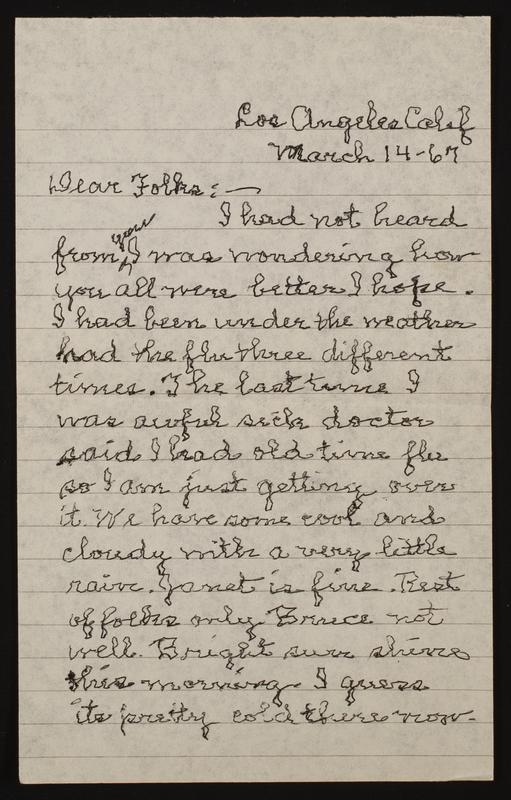 Los Angeles Calif
March 14-67
Dear Folks:—
I had not heard
from you I was wondering how
you all were better I hope.
I had been under the weather
had the flu three different
times. The last time I
was awful sick doctor
said I had old time flu
so I am just getting over
it. We have some cool and
cloudy with a very little
rain. Janet is fine. Rest
of folks only Bruce not
well. Bright sun shine
this morning. I guess
its pretty cold there now.